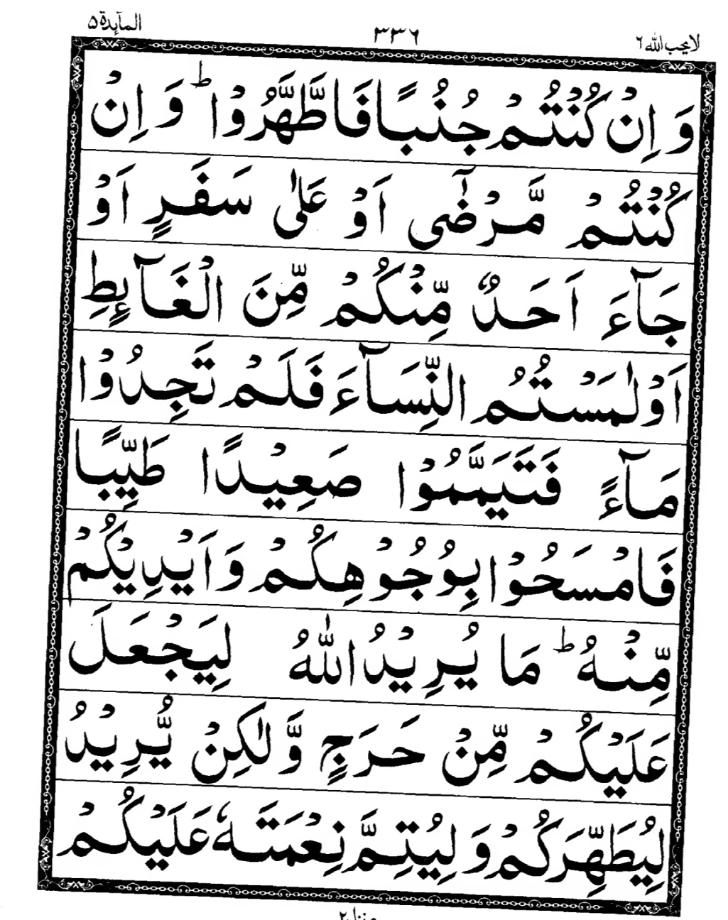 لا یحب الله ٦ ٣٣٦ المآىدة ٥
وَ اِنْ كُنْتُمْ جُنُبًا فَاطَّهَّرُوْا ؕ وَ اِنْ
كُنْتُمْ مَّرْضٰۤی اَوْ عَلٰی سَفَرٍ اَوْ
جَآءَ اَحَدٌ مِّنْكُمْ مِّنَ الْغَآىِٕطِ
اَوْ لٰمَسْتُمُ النِّسَآءَ فَلَمْ تَجِدُوْا
مَآءً فَتَیَمَّمُوْا صَعِیْدًا طَیِّبًا
فَامْسَحُوْا بِوُجُوْهِكُمْ وَ اَیْدِیْكُمْ
مِّنْهُ ؕ مَا یُرِیْدُ اللّٰهُ لِیَجْعَلَ
عَلَیْكُمْ مِّنْ حَرَجٍ وَّ لٰكِنْ یُّرِیْدُ
لِیُطَهِّرَكُمْ وَ لِیُتِمَّ نِعْمَتَهٗ عَلَیْكُمْ
منزل ٢